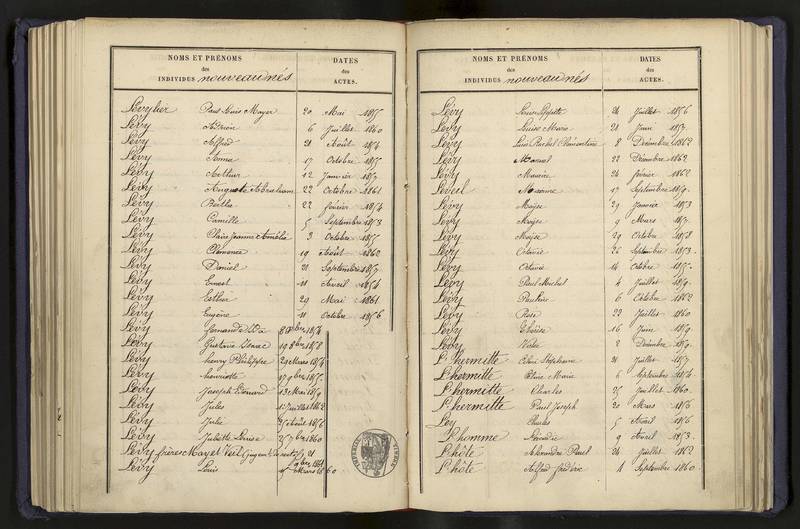 NOMS ET PRÉNOMS
des
INDIVIDUS nouveau nés
DATES
des
ACTES.
Levylier Paul Louis Mayer 20 Mai 1855
Lévy Adrien 6 Juillet 1860
Lévy Alfred 21 Août 1854
Lévy Anna 17 Octobre 1855
Lévy Arthur 12 Janvier 1857
Lévy Auguste Abraham 22 Octobre 1861
Lévy Berthe 22 février 1854
Lévy Camille 5 Septembre 1853
Lévy Claire Jeanne Amélie 3 Octobre 1855
Lévy Clémence 19 Août 1860
Lévy Daniel 21 Septembre 1857
Lévy Ernest 11 Avril 1854
Lévy Esther 29 Mai 1861
Lévy Eugène 11 Octobre 1856
Lévy fernand 8 1854
Lévy Gustave Isaac 19 8bre 1858
Lévy henry Philippe 29 Mars 1856
Lévy henriette 17 9bre 1855
Lévy Joseph Edouard 13 Mai 1859
Lévy Jules 1er Juillet 1862
Lévy Julie Août 1856
Lévy Juliette Louise 25 7bre 1860
Lévy frères May et Veil Jugement 21 9bre 1861
Lévy Louis 9 Mars 1860
NOMS ET PRÉNOMS
des
INDIVIDUS nouveau nés
DATES
des
ACTES.
Lévy 26 Juillet 1856
Lévy Louise Marie 21 Juin 1857
Lévy Luis Rachel Clémentine 8 Décembre 1862
Lévy Marcel 22 Décembre 1862
Lévy Maurice 24 février 1862
Leveil Maxime 17 Septembre 1859
Lévy Moÿse 29 Janvier 1853
Lévy Moÿse 9 Mars 1857
Lévy Moÿse 29 Octobre 1858
Lévy Octavie 26 Septembre 1853
Lévy Octavie 14 Octobre 1855
Lévy Paul Michel 4 Juillet 1859
Lévy Pauline 6 Octobre 1862
Lévy Rose 23 Juillet 1860
Lévy Thérèse 16 Juin 1859
Lévy 2 Décembre 1859
L'hermitte Stéphanie 21 Juillet 1857
L'hermitte Marie 6 Septembre 1854
L'hermitte Charles 25 Juillet 1860
L'hermitte Paul Joseph 20 Mars 1856
Ley Charles 5 Août 1856
L'homme Léocadie 9 Avril 1853
L'hôte Alexandre Paul 24 Juillet 1862
L'hôte Alfred frédéric 4 Septembre 1860